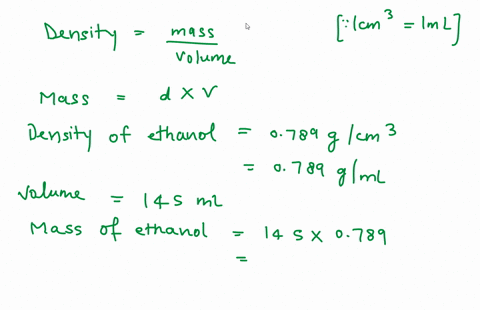 Density = mass / volume [∵ 1cm³ = 1mL]
Mass = d × V
Density of ethanol = 0.789 g/cm³
= 0.789 g/mL
Volume = 145 mL
Mass of ethanol = 145 × 0.789
=